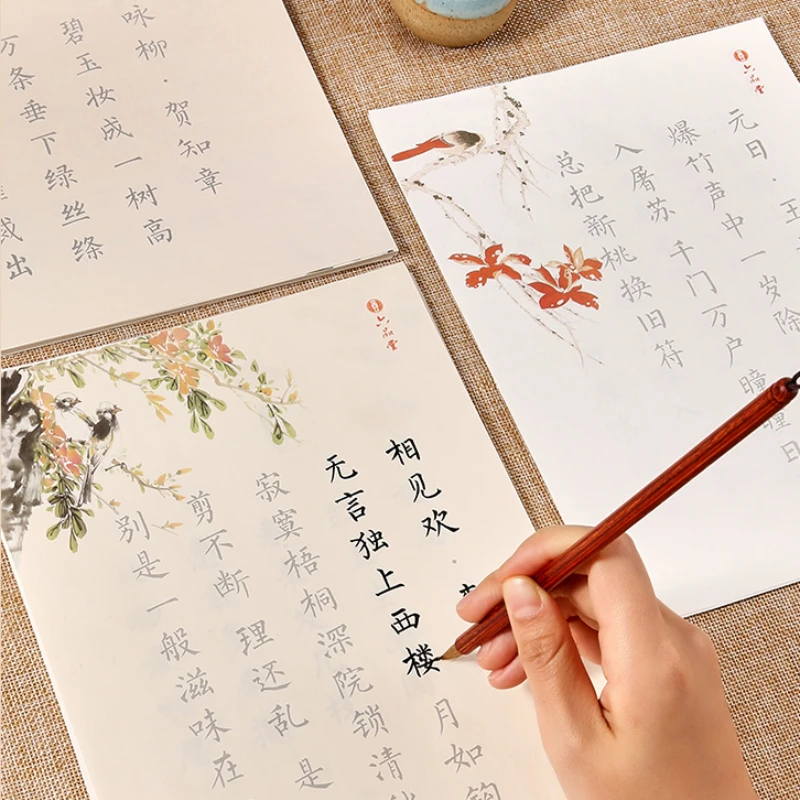 咏柳·贺知章
碧玉妆成一树高
万条垂下绿丝绦
出
六品堂
元日·王
爆竹声中一岁除
入屠苏 千门万户曈曈日
总把新桃换旧符
六品堂
相见欢·
无言独上西楼 月如钩
寂寞梧桐深院锁清
剪不断 理还乱 是
别是一般滋味在